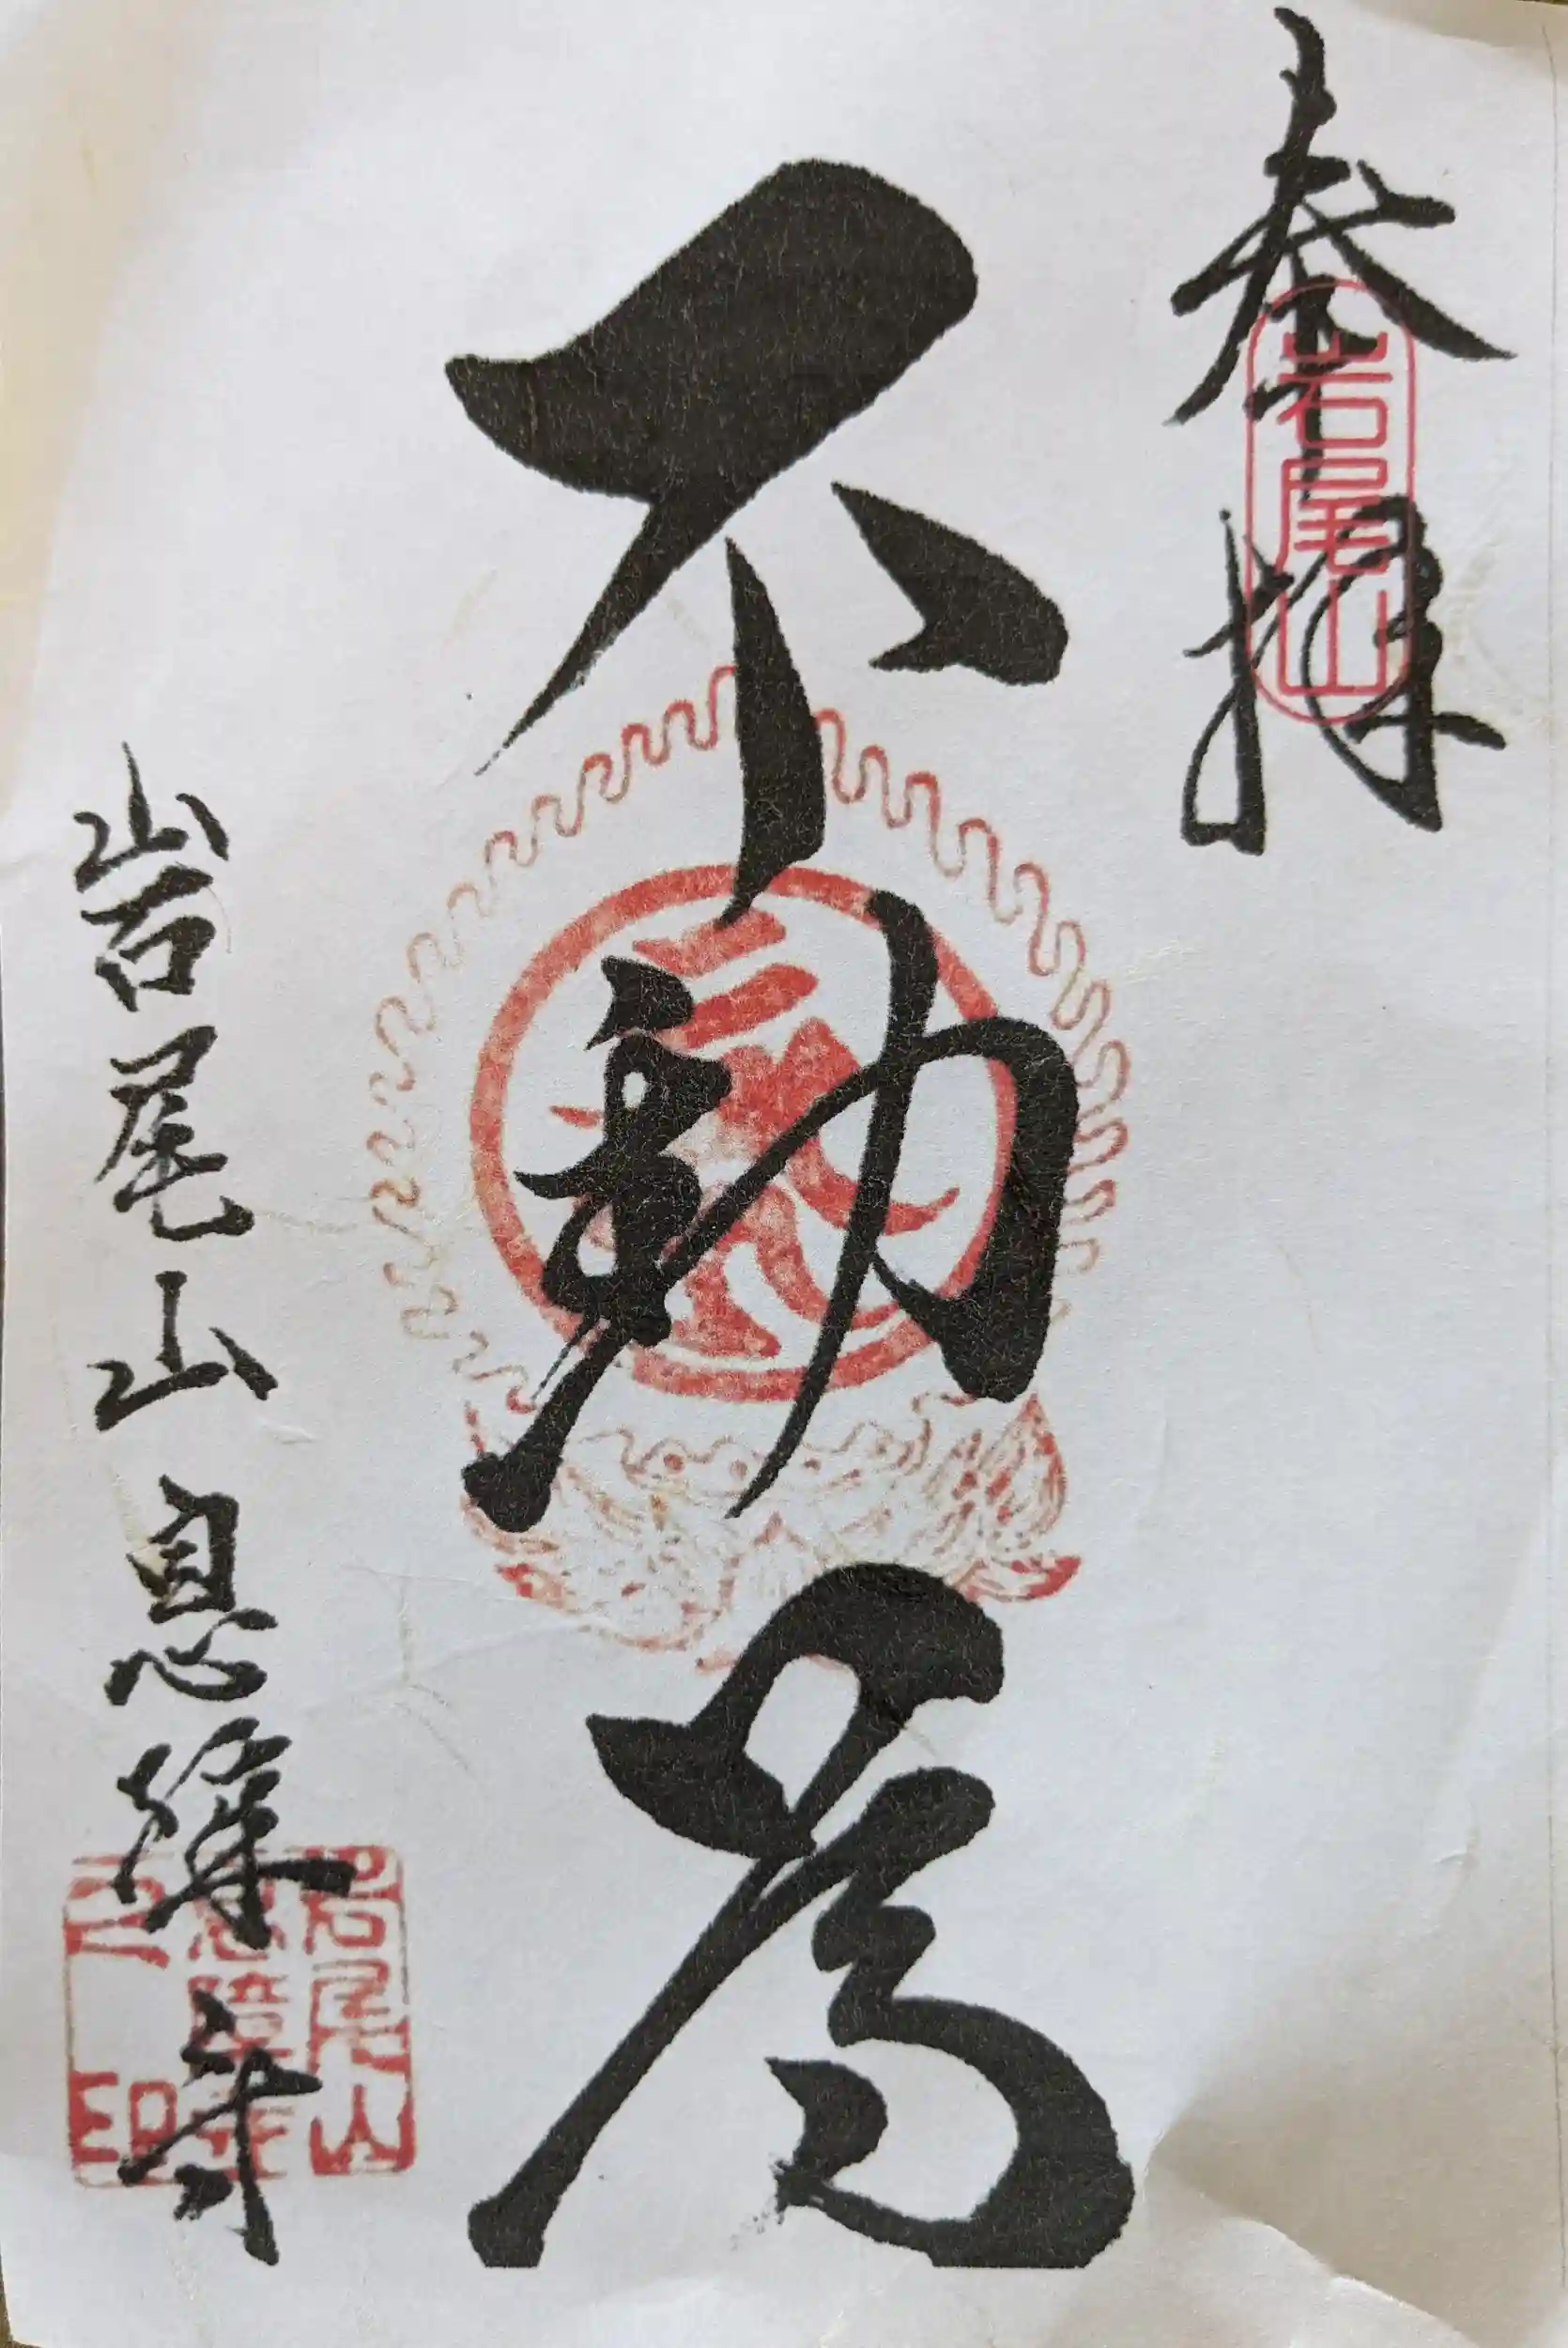 奉拝
岩尾山
不動尊
岩尾山 息障寺
岩尾山
息障寺
之印